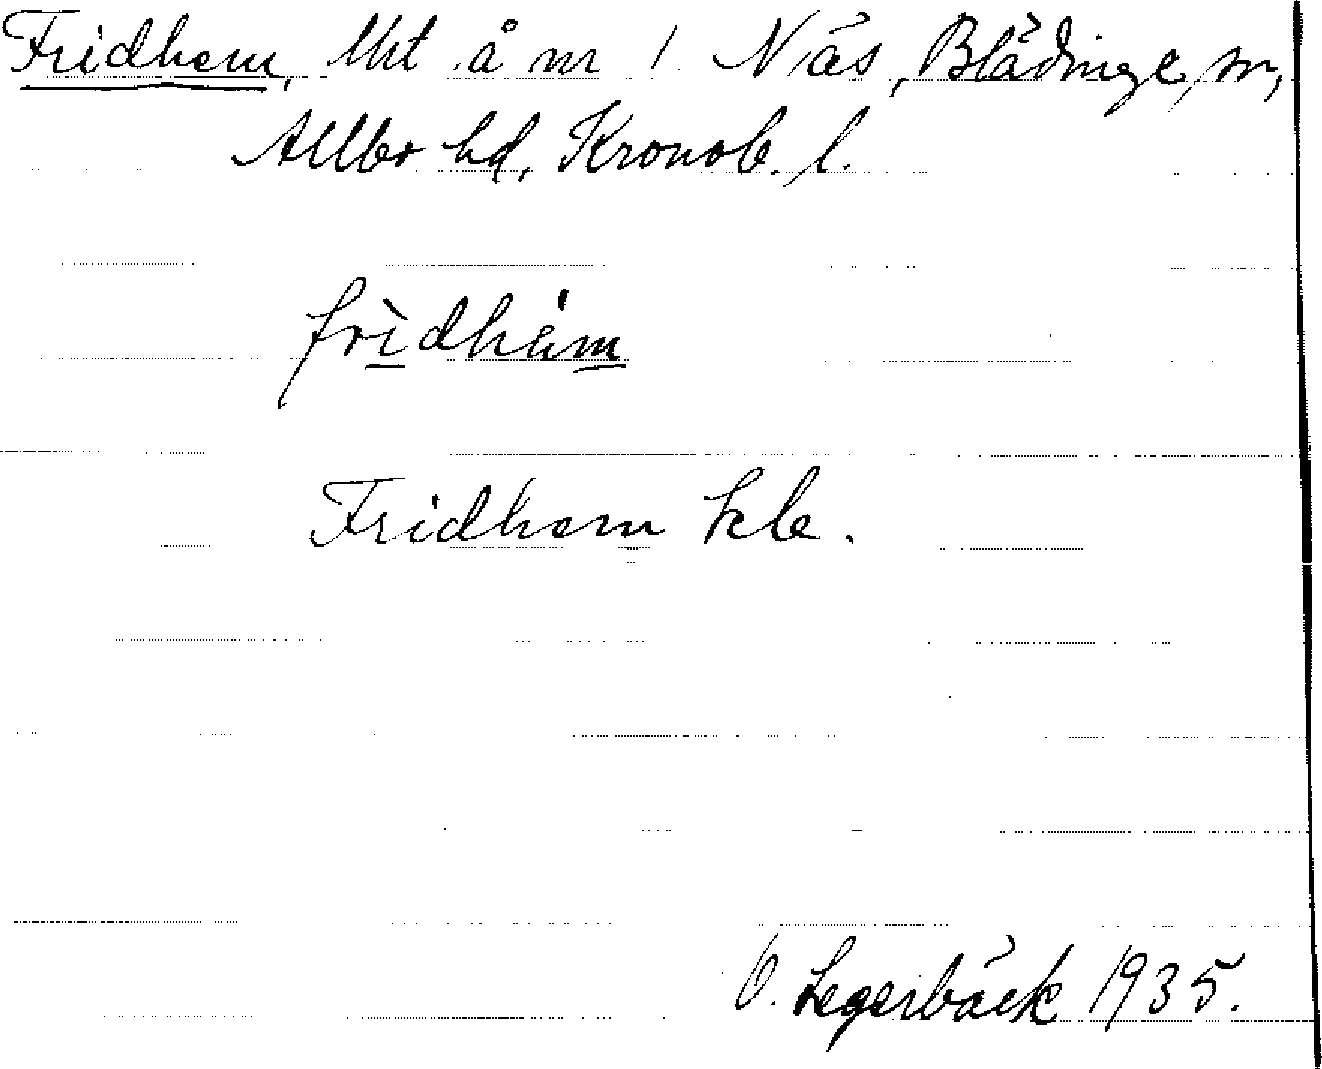 Fridhem, lht å nr 1 Näs, Blädinge sn,
Allbo hd, Kronob. l.
fridhäm
Fridhem kle.
O. Legerbäck 1935.